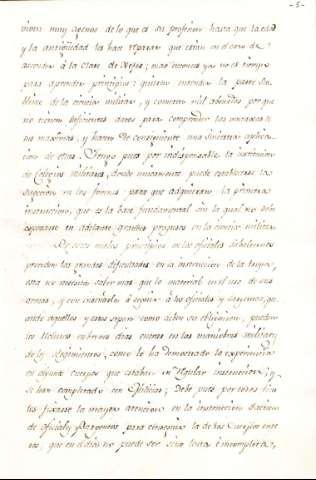 - 5 -
viven muy agenos de lo que es su profesion hasta que la edad
y la antigüedad las hace reparar que estan en el caso de
ascender à la Clase de Xefes; mas entonces ya no es tiempo
para aprender principios: quieren entender la parte su-
blime de la ciencia militar, y cometen mil absurdos porque
no tienen suficientes datos para comprender las
sus maximas, y hacen de consiguiente una siniestra aplica-
cion de ellas. Tengo pues por indispensable la institucion
de Colegios Militares, donde unicamente puede establecerse la
sugecion en los jovenes para que adquieran la primera
instruccion, que es la base fundamental sin la qual no debe
esperarse en adelante grandes progresos en la ciencia militar.
De estos malos principios en los oficiales
proceden las grandes dificultades en la instruccion de la tropa;
esta no necesita saber mas que lo material en el uso de sus
armas, y con enseñarles à seguir à los oficiales y sargentos, qu-
ando aquellos y estos sepan como deben su obligacion, pueden
los reclutas en treinta dias entrar en las maniobras militares
de los Regimientos, como lo ha demostrado la experiencia
en algunos cuerpos que estaban en regular instruccion, y
se han completado con Quintos; Debe pues por todos
fixarse la mayor atencion en la instruccion
de oficiales y Sargentos para conseguir la de los Cuerpos ente-
ros, que en el dia no puede ser sino lenta è incompleta,